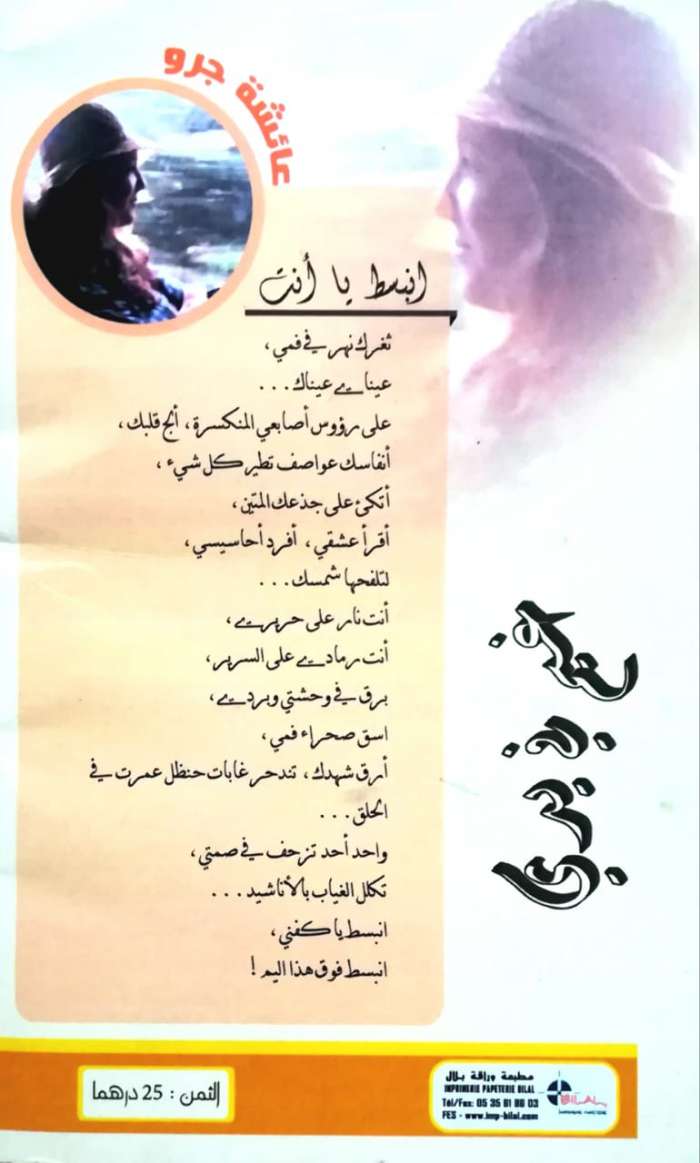 عائشة جرو
انبسط يا أنت
ثغرك نهر في فمي،
عيناي عيناك...
على رؤوس أصابعي المنكسرة، ألج قلبك،
أنفاسك عواصف تطير كل شيء،
أتكئ على جذعك المتين،
أقرأ عشقي، أفرد أحاسيسي،
لتلفحها شمسك...
أنت نار على حريري،
أنت رمادي على السرير،
برق في وحشتي وبردي،
اسق صحراء فمي،
أرق شهدك، تندحر غابات حنظل عمرت في
الحلق...
واحد أحد تزحف في صمتي،
تكلل الغياب بالأناشيد...
انبسط يا كفني،
انبسط فوق هذا اليم!
الثمن: 25 درهما
مطبعة وراقة بلال
IMPRIMERIE PAPETERIE BILAL
Tél/Fax: 05 35 61 86 03
FES - www.imp-bilal.com
BILAL